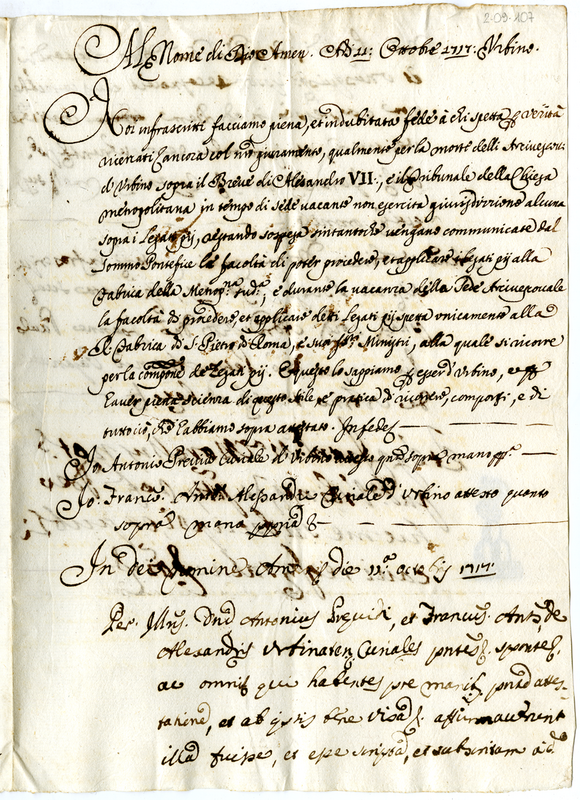 2-09-107
Al Nome di Dio Amen. Adi 11: Ottobre 1717: Urbino.
Noi infrascritti facciamo piena, et indubitata fede à chi spetta verità
ricercati ancora col nro giuramento, qualmente per la morte delli Arcivescovi
d'Urbino sopra il Breve di Alesandro VII:, e il Tribunale della Chiesa
metropolitana in tempo di sede vacante non esercita giurisdizione alcuna
sopra i Legati pij, restando sospesa sintantoche vengano communicate dal
Sommo Pontefice le facoltà di poter procedere, et applicare i legati pij alla
Fabrica della Metrop.na sud.a, e durante la vacanza della Sede Arcivescovale
la facoltà di procedere, et applicare detti Legati pij spetta unicamente alla
R. Fabrica di S. Pietro di Roma, e suoi Ministri, alla quale si ricorre
per la compone de Legati pij. E questo lo sappiamo esser d'Urbino, e
haver piena scienza di questo stile e pratica di ricorrere, comporsi, e di
tutto ciò, che habbiamo sopra attestato. In fede
Io Antonio Curiale d'Urbino quanto sopra mano pp.a
Io. Franc.o Ant.o Alesandri Curiale d'Urbino attesto quanto
sopra mano ppria
In dei Nomine Amen die 11.a octobris 1717:
Per Illus. Dnos Antonius et Francus. Ants. de
Alesandris Urbinaten Curiales pntes sponte
ac omni qui habentes pre manib. pntad attes-
tationem, et ab ipsis bene visa affirmaverunt
illa fuisse, et esse scripta, et subscritam ad